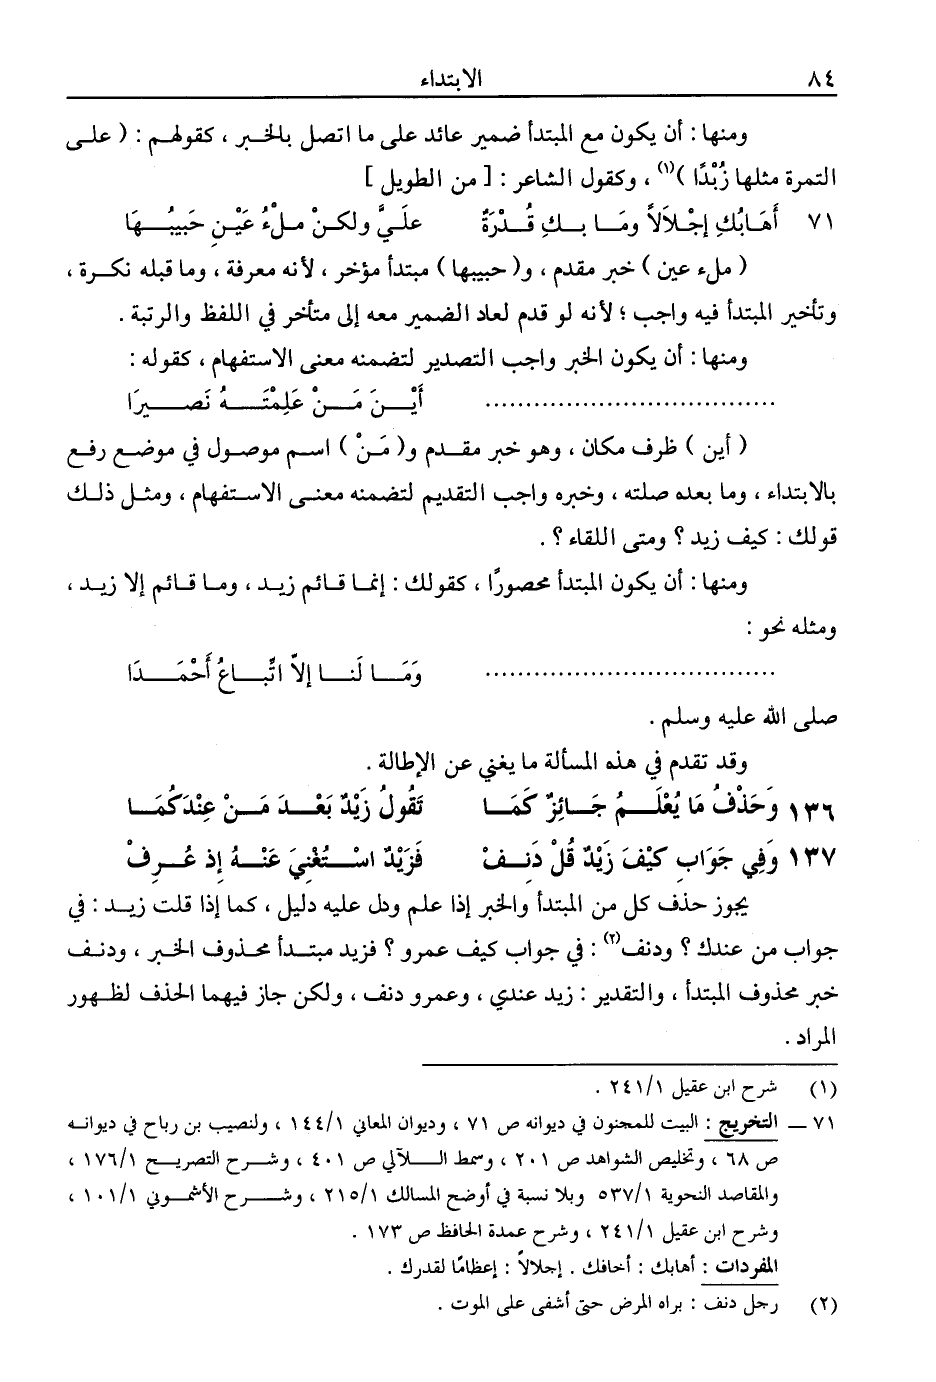 ٨٤ الابتداء
ومنها : أن يكون مع المبتدأ ضمير عائد على ما اتصل بالخبر ، كقولهم : ( على
التمرة مثلها زُبْدًا )(١) ، وكقول الشاعر : [ من الطويل ]
٧١ أَهَابُكِ إِجْلَالاً ومَا بكِ قُدْرَةٌ علَيَّ ولكنْ مِلْءُ عَيْنٍ حَبيبُهَا
( ملء عين ) خبر مقدم ، و( حبيبها ) مبتدأ مؤخر ، لأنه معرفة ، وما قبله نكرة ،
وتأخير المبتدأ فيه واجب ؛ لأنه لو قدم لعاد الضمير معه إلى متأخر في اللفظ والرتبة .
ومنها : أن يكون الخبر واجب التصدير لتضمنه معنى الاستفهام ، كقوله :
................................... أَيْنَ مَنْ عَلِمْتَهُ نَصِيرَا
( أين ) ظرف مكان ، وهو خبر مقدم و( مَنْ ) اسم موصول في موضع رفع
بالابتداء ، وما بعده صلته ، وخبره واجب التقديم لتضمنه معنى الاستفهام ، ومثل ذلك
قولك : كيف زيد ؟ ومتى اللقاء ؟ .
ومنها : أن يكون المبتدأ محصورًا ، كقولك : إنما قائم زيد ، وما قائم إلا زيد ،
ومثله نحو :
................................... وَمَا لَنا إلاّ اتِّباعُ أَحْمَدَا
صلى الله عليه وسلم .
وقد تقدم في هذه المسألة ما يغني عن الإطالة .
١٣٦ وَحَذْفُ مَا يُعْلَمُ جَائِزٌ كَمَا تَقُولُ زَيْدٌ بَعْدَ مَنْ عِنْدَكُمَا
١٣٧ وَفِي جَوَابِ كَيْفَ زَيْدٌ قُلْ دَنِفْ فَزَيْدٌ اسْتُغْنِيَ عَنْهُ إذ عُرِفْ
يجوز حذف كل من المبتدأ والخبر إذا علم ودل عليه دليل ، كما إذا قلت زيد : في
جواب من عندك ؟ ودنف(٢) : في جواب كيف عمرو ؟ فزيد مبتدأ محذوف الخبر ، ودنف
خبر محذوف المبتدأ ، والتقدير : زيد عندي ، وعمرو دنف ، ولكن جاز فيهما الحذف لظهور
المراد .
(١) شرح ابن عقيل ٢٤١/١ .
٧١ ــ التخريج : البيت للمجنون في ديوانه ص ٧١ ، وديوان المعاني ١٤٤/١ ، ولنصيب بن رباح في ديوانه
ص ٦٨ ، وتخليص الشواهد ص ٢٠١ ، وسمط اللآلي ص ٤٠١ ، وشرح التصريح ١٧٦/١ ،
والمقاصد النحوية ٥٣٧/١ وبلا نسبة في أوضح المسالك ٢١٥/١ ، وشرح الأشموني ١٠١/١ ،
وشرح ابن عقيل ٢٤١/١ ، وشرح عمدة الحافظ ص ١٧٣ .
المفردات : أهابك : أخافك . إجلالاً : إعظامًا لقدرك .
(٢) رجل دنف : براه المرض حتى أشفى على الموت .